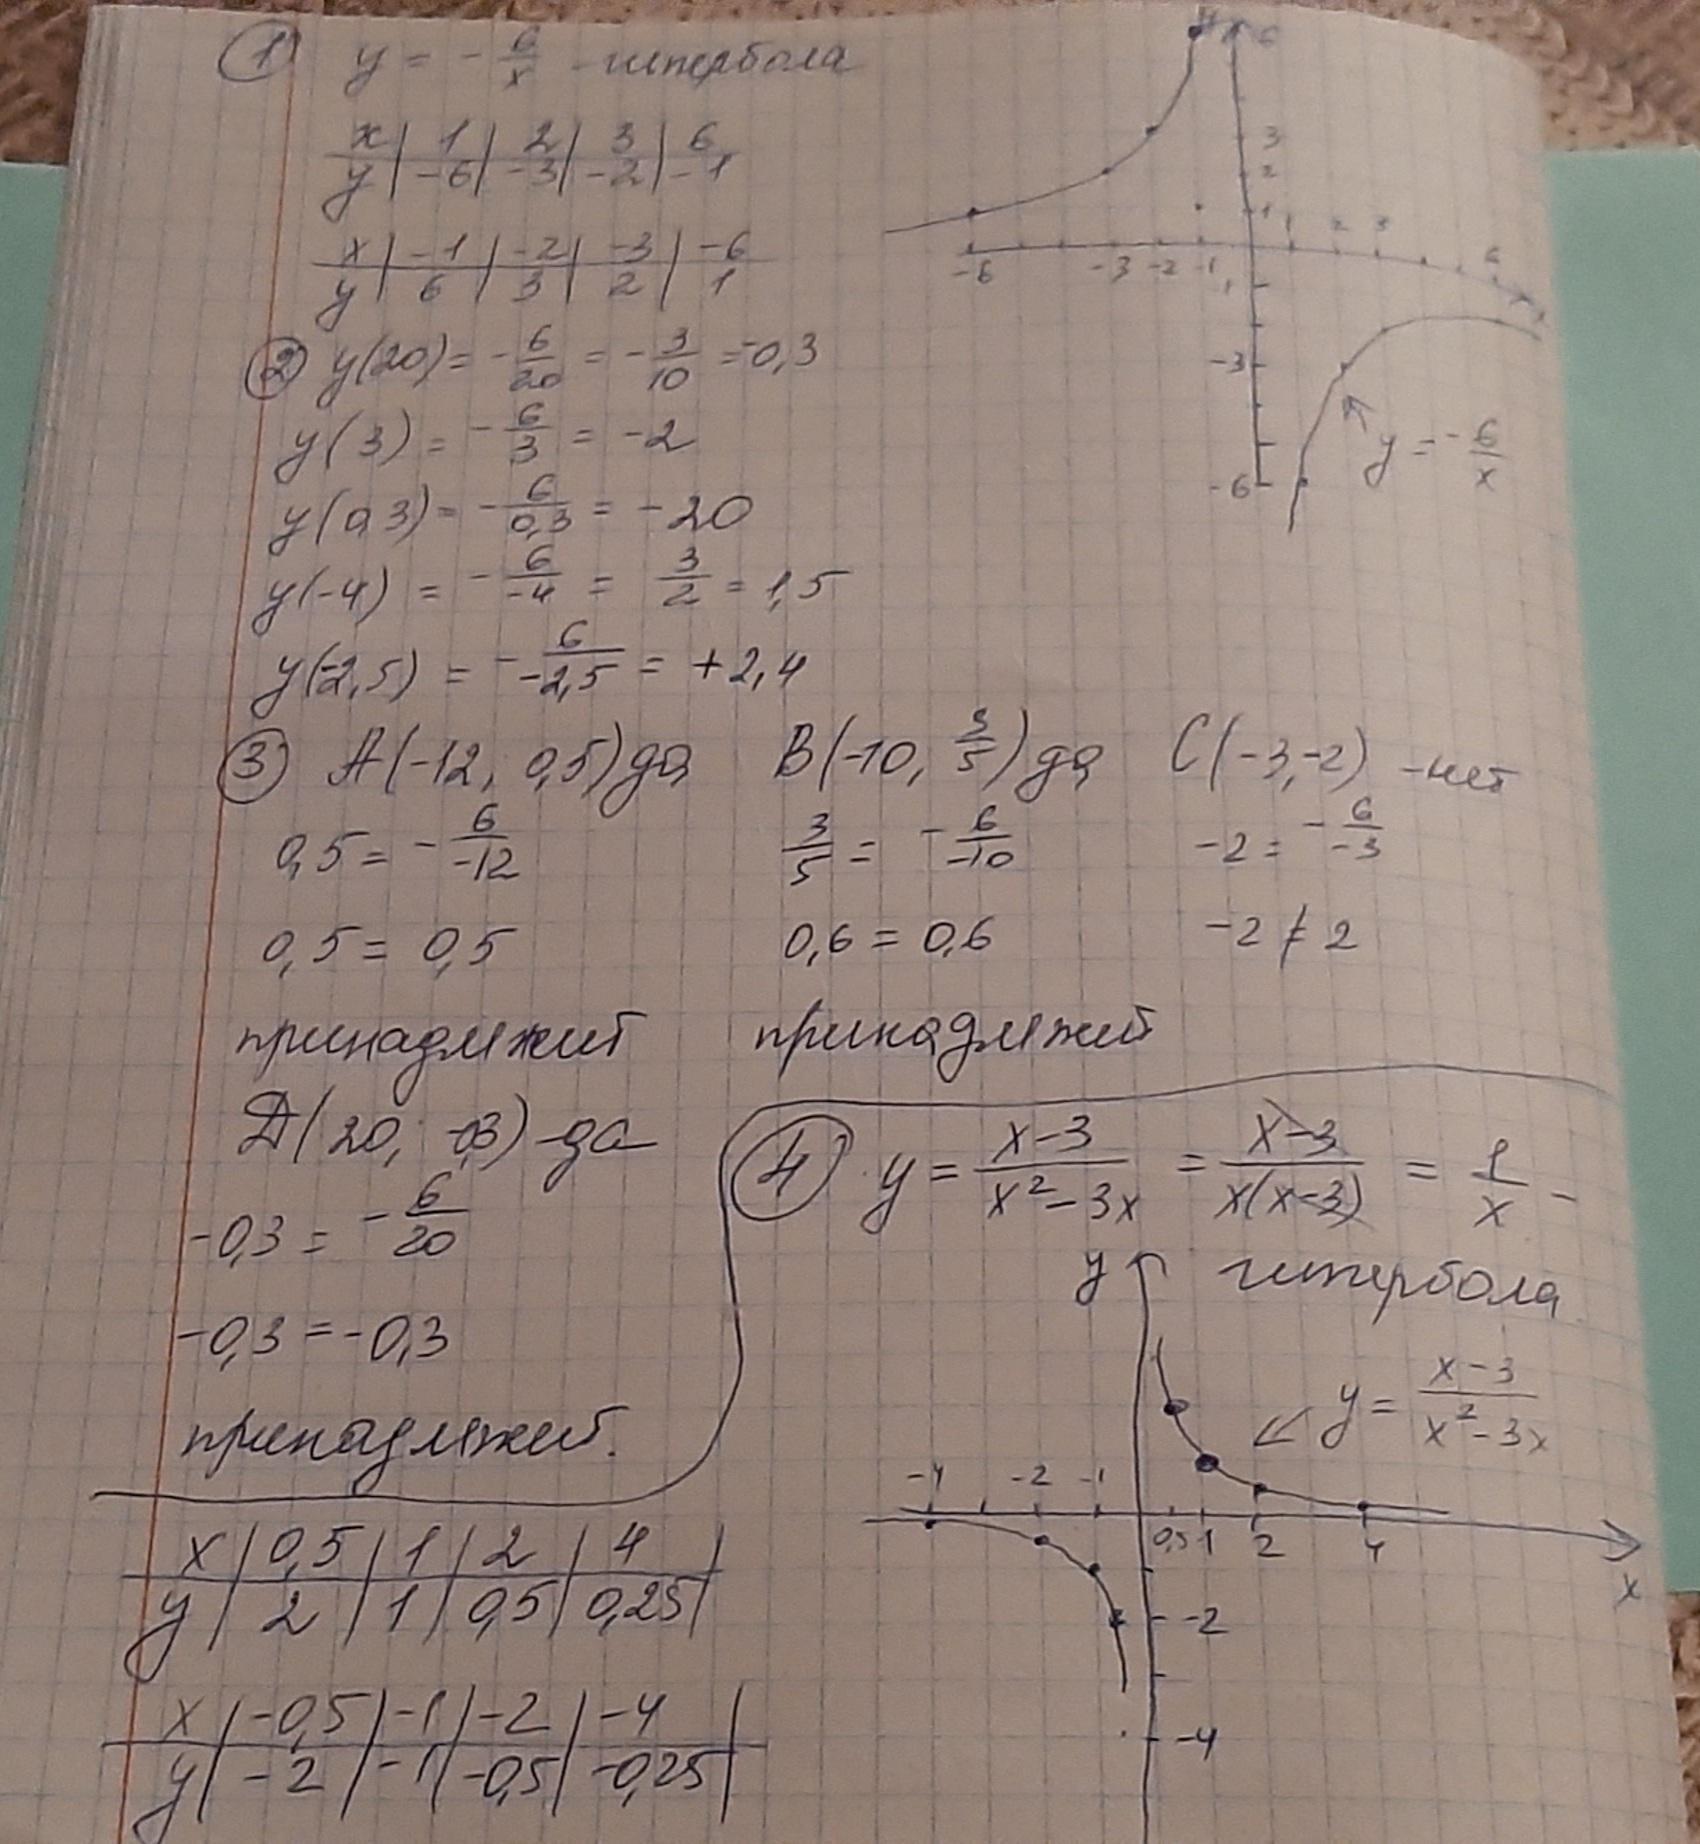 ① y = -6/x - гипербола
x | 1 | 2 | 3 | 6
y | -6 | -3 | -2 | -1
x | -1 | -2 | -3 | -6
y | 6 | 3 | 2 | 1
6
3
2
1
-6 -3 -2 -1 1 2 3 6
x
1
-3
-6
y = -6/x
② y(20) = -6/20 = -3/10 = -0,3
y(3) = -6/3 = -2
y(0,3) = -6/0,3 = -20
y(-4) = -6/-4 = 3/2 = 1,5
y(-2,5) = -6/-2,5 = +2,4
③ A(-12, 0,5) да B(-10, 3/5) да C(-3,-2) - нет
0,5 = -6/-12 3/5 = -6/-10 -2 = -6/-3
0,5 = 0,5 0,6 = 0,6 -2 ≠ 2
принадлежит принадлежит
Д(20; -0,3) - да
-0,3 = -6/20
-0,3 = -0,3
принадлежит.
④ y = x-3/x²-3x = x-3/x(x-3) = 1/x -
гипербола
y
y = x-3/x²-3x
-4 -2 -1 0,5 1 2 4
x
-2
-4
x | 0,5 | 1 | 2 | 4 |
y | 2 | 1 | 0,5 | 0,25 |
x | -0,5 | -1 | -2 | -4 |
y | -2 | -1 | -0,5 | -0,25 |